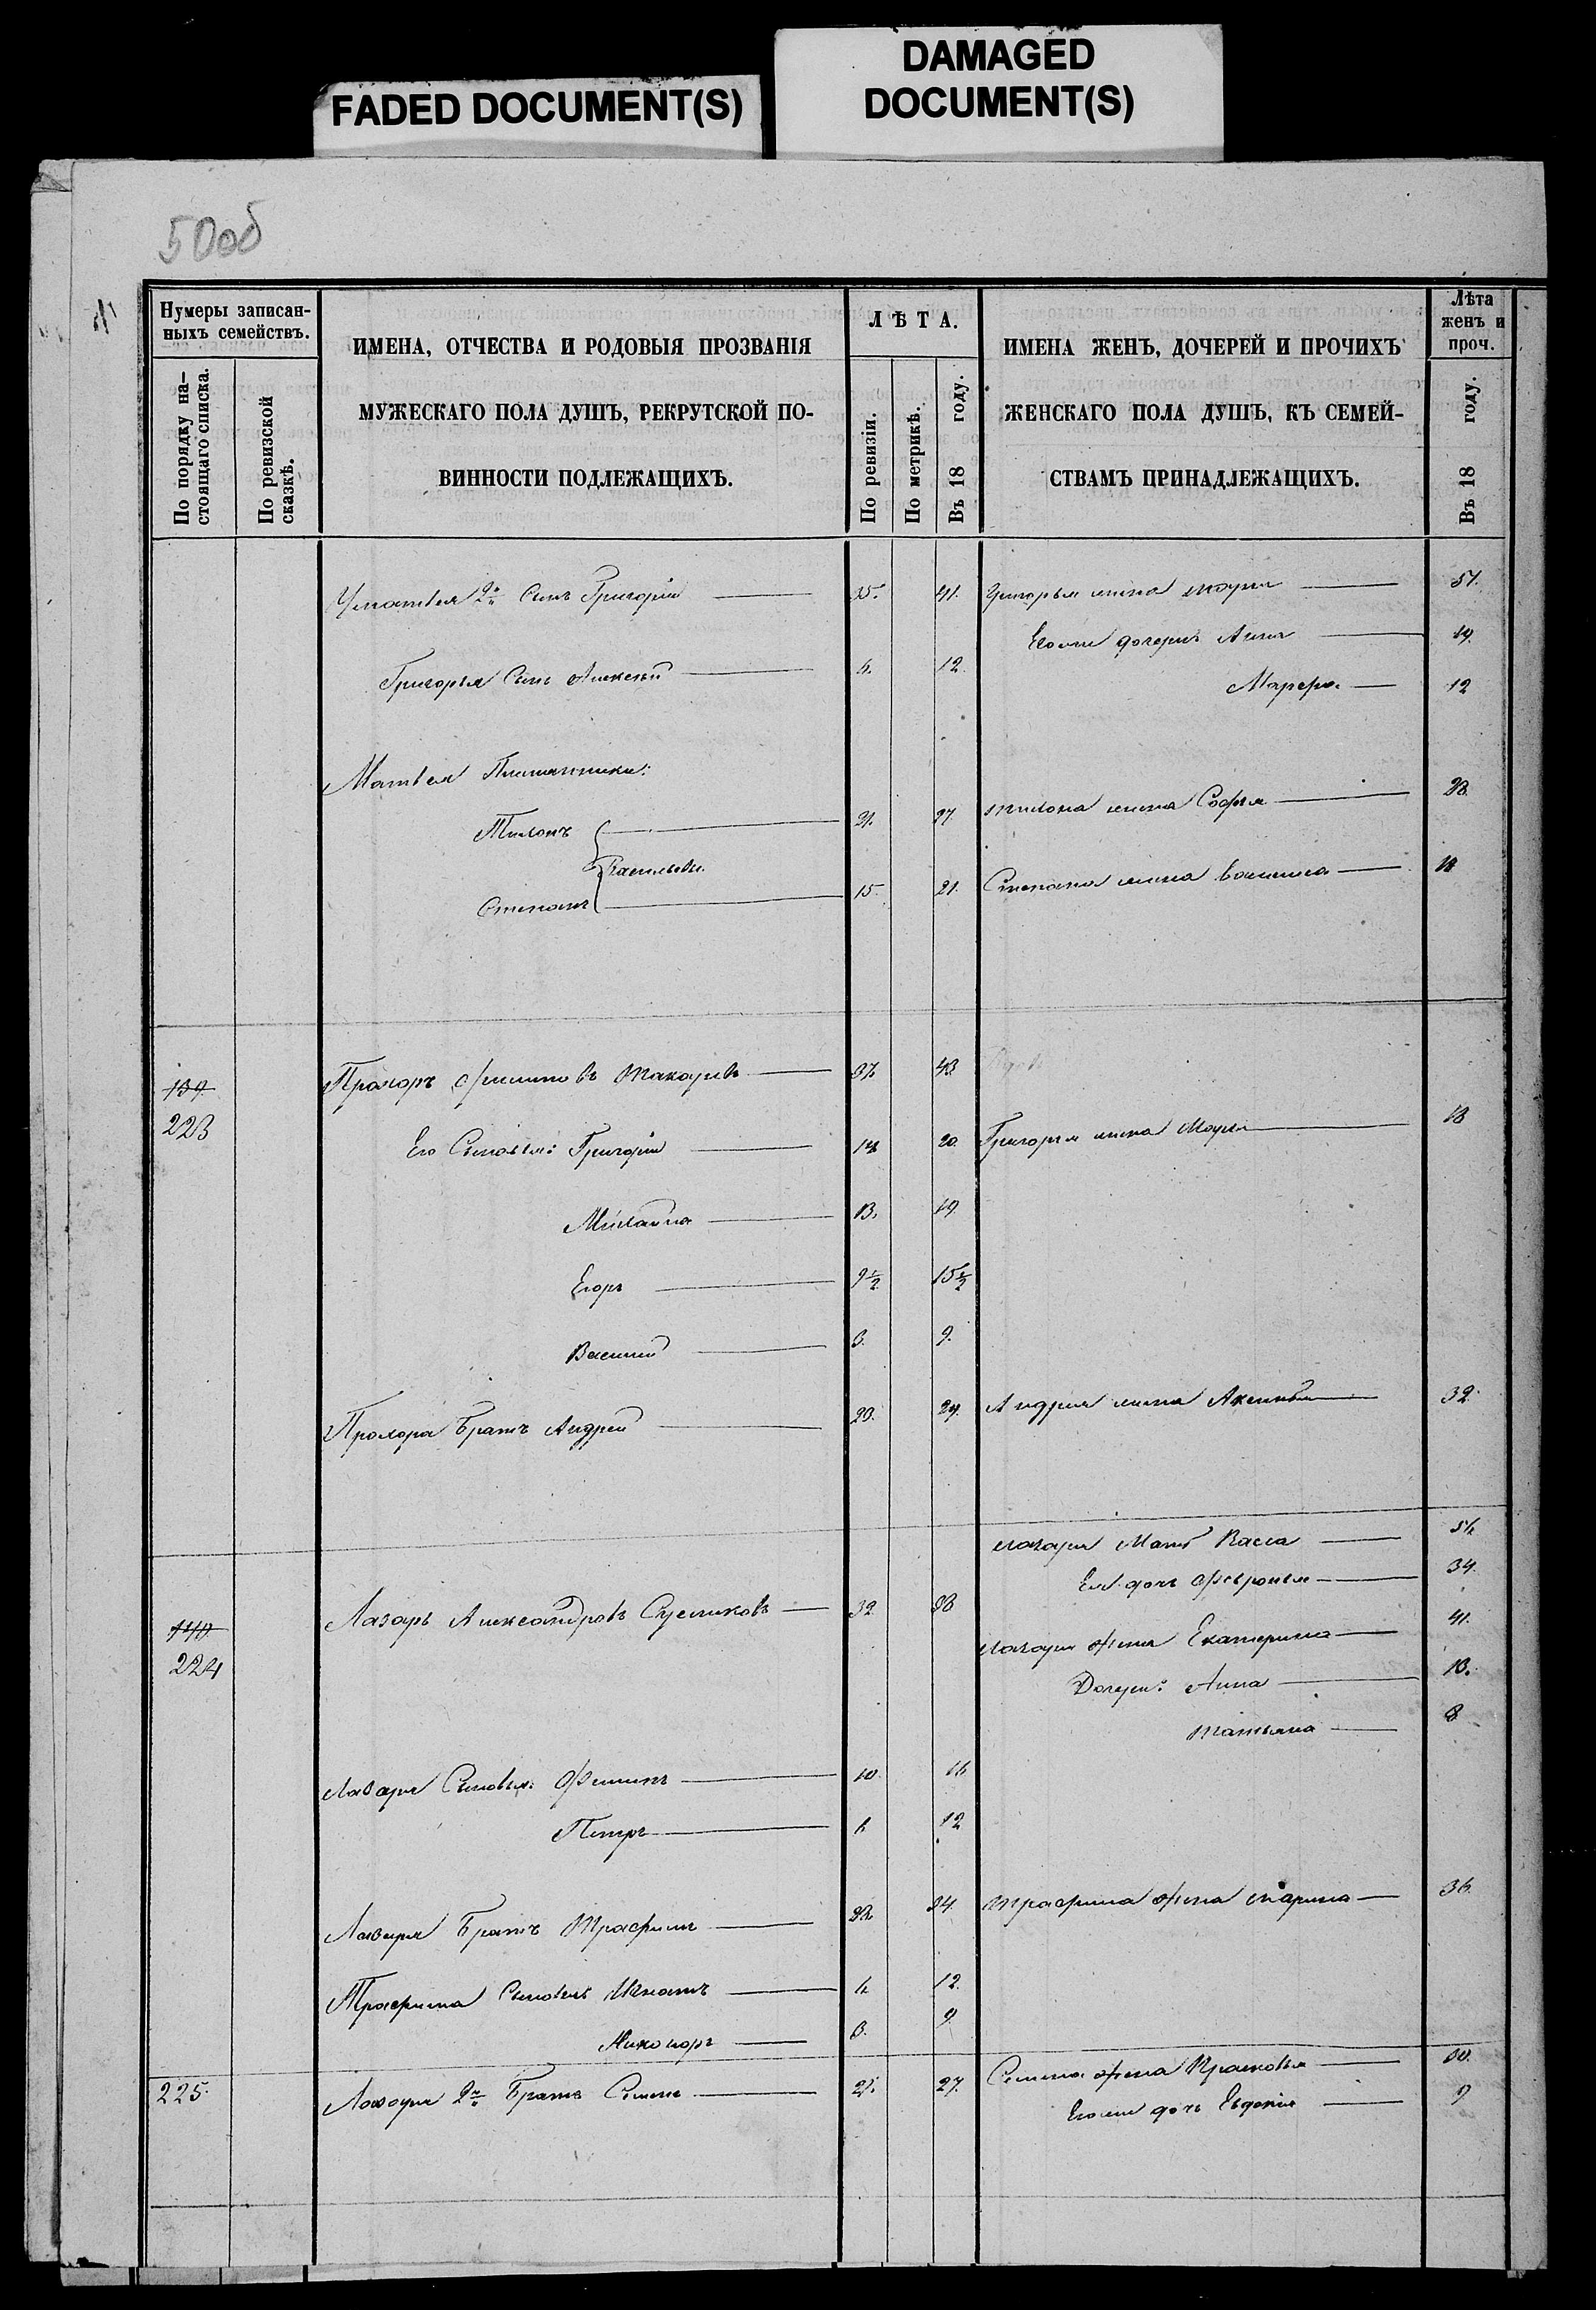 FADED DOCUMENT(S)
DAMAGED
DOCUMENT(S)
50об
Нумеры записан-
ныхъ семействъ.
По порядку на-
стоящаго списка.
По ревизской
сказкѣ.
ИМЕНА, ОТЧЕСТВА И РОДОВЫЯ ПРОЗВАНІЯ
МУЖЕСКАГО ПОЛА ДУШЪ, РЕКРУТСКОЙ ПО-
ВИННОСТИ ПОДЛЕЖАЩИХЪ.
ЛѢТА.
По ревизіи.
По метрикѣ.
Въ 18 году.
ИМЕНА ЖЕНЪ, ДОЧЕРЕЙ И ПРОЧИХЪ
ЖЕНСКАГО ПОЛА ДУШЪ, КЪ СЕМЕЙ-
СТВАМЪ ПРИНАДЛЕЖАЩИХЪ.
Лѣта
женъ и
проч.
Въ 18 году.
Игнатья 2й Сынъ Григорій 35. 41. Григорья жена Марья
Его же дочери Анна 19.
Григорья Сынъ Алексѣй 6. 12.
Марѳа 12
Матвея Племянники:
Тихонъ 21. 27 Тихона жена Софья 28.
Васильевы
Степанъ 15. 21. Степана жена
139
223
Прохоръ Филиповъ 37. 43.
Его Сыновья: Григорій 14 20. Григорья жена Марья 18
Михайла 13. 19.
Егоръ 9½ 15½
Василий 3. 9.
Прохора Братъ Андрей 23. 29. Андрея жена Аксинья 32.
Лазаря Мать Васса
Ея дочь Февронья 34.
140
224
Лазарь Александровъ Сусликовъ 32 38
Лазаря жена Екатерина 41.
Дочери: Анна 13.
Татьяна 8
Лазаря Сыновья: Филипъ 10. 16
Петръ 6 12
Лазаря Братъ Трафимъ 28 34. Трафима жена Марина 36.
Трафима Сыновья Игнатъ 6 12.
Никоноръ 3. 9
225.
Лазаря 2й Братъ Семенъ 21. 27. Семена жена Прасковья 30.
Его же дочь Евдокія 9